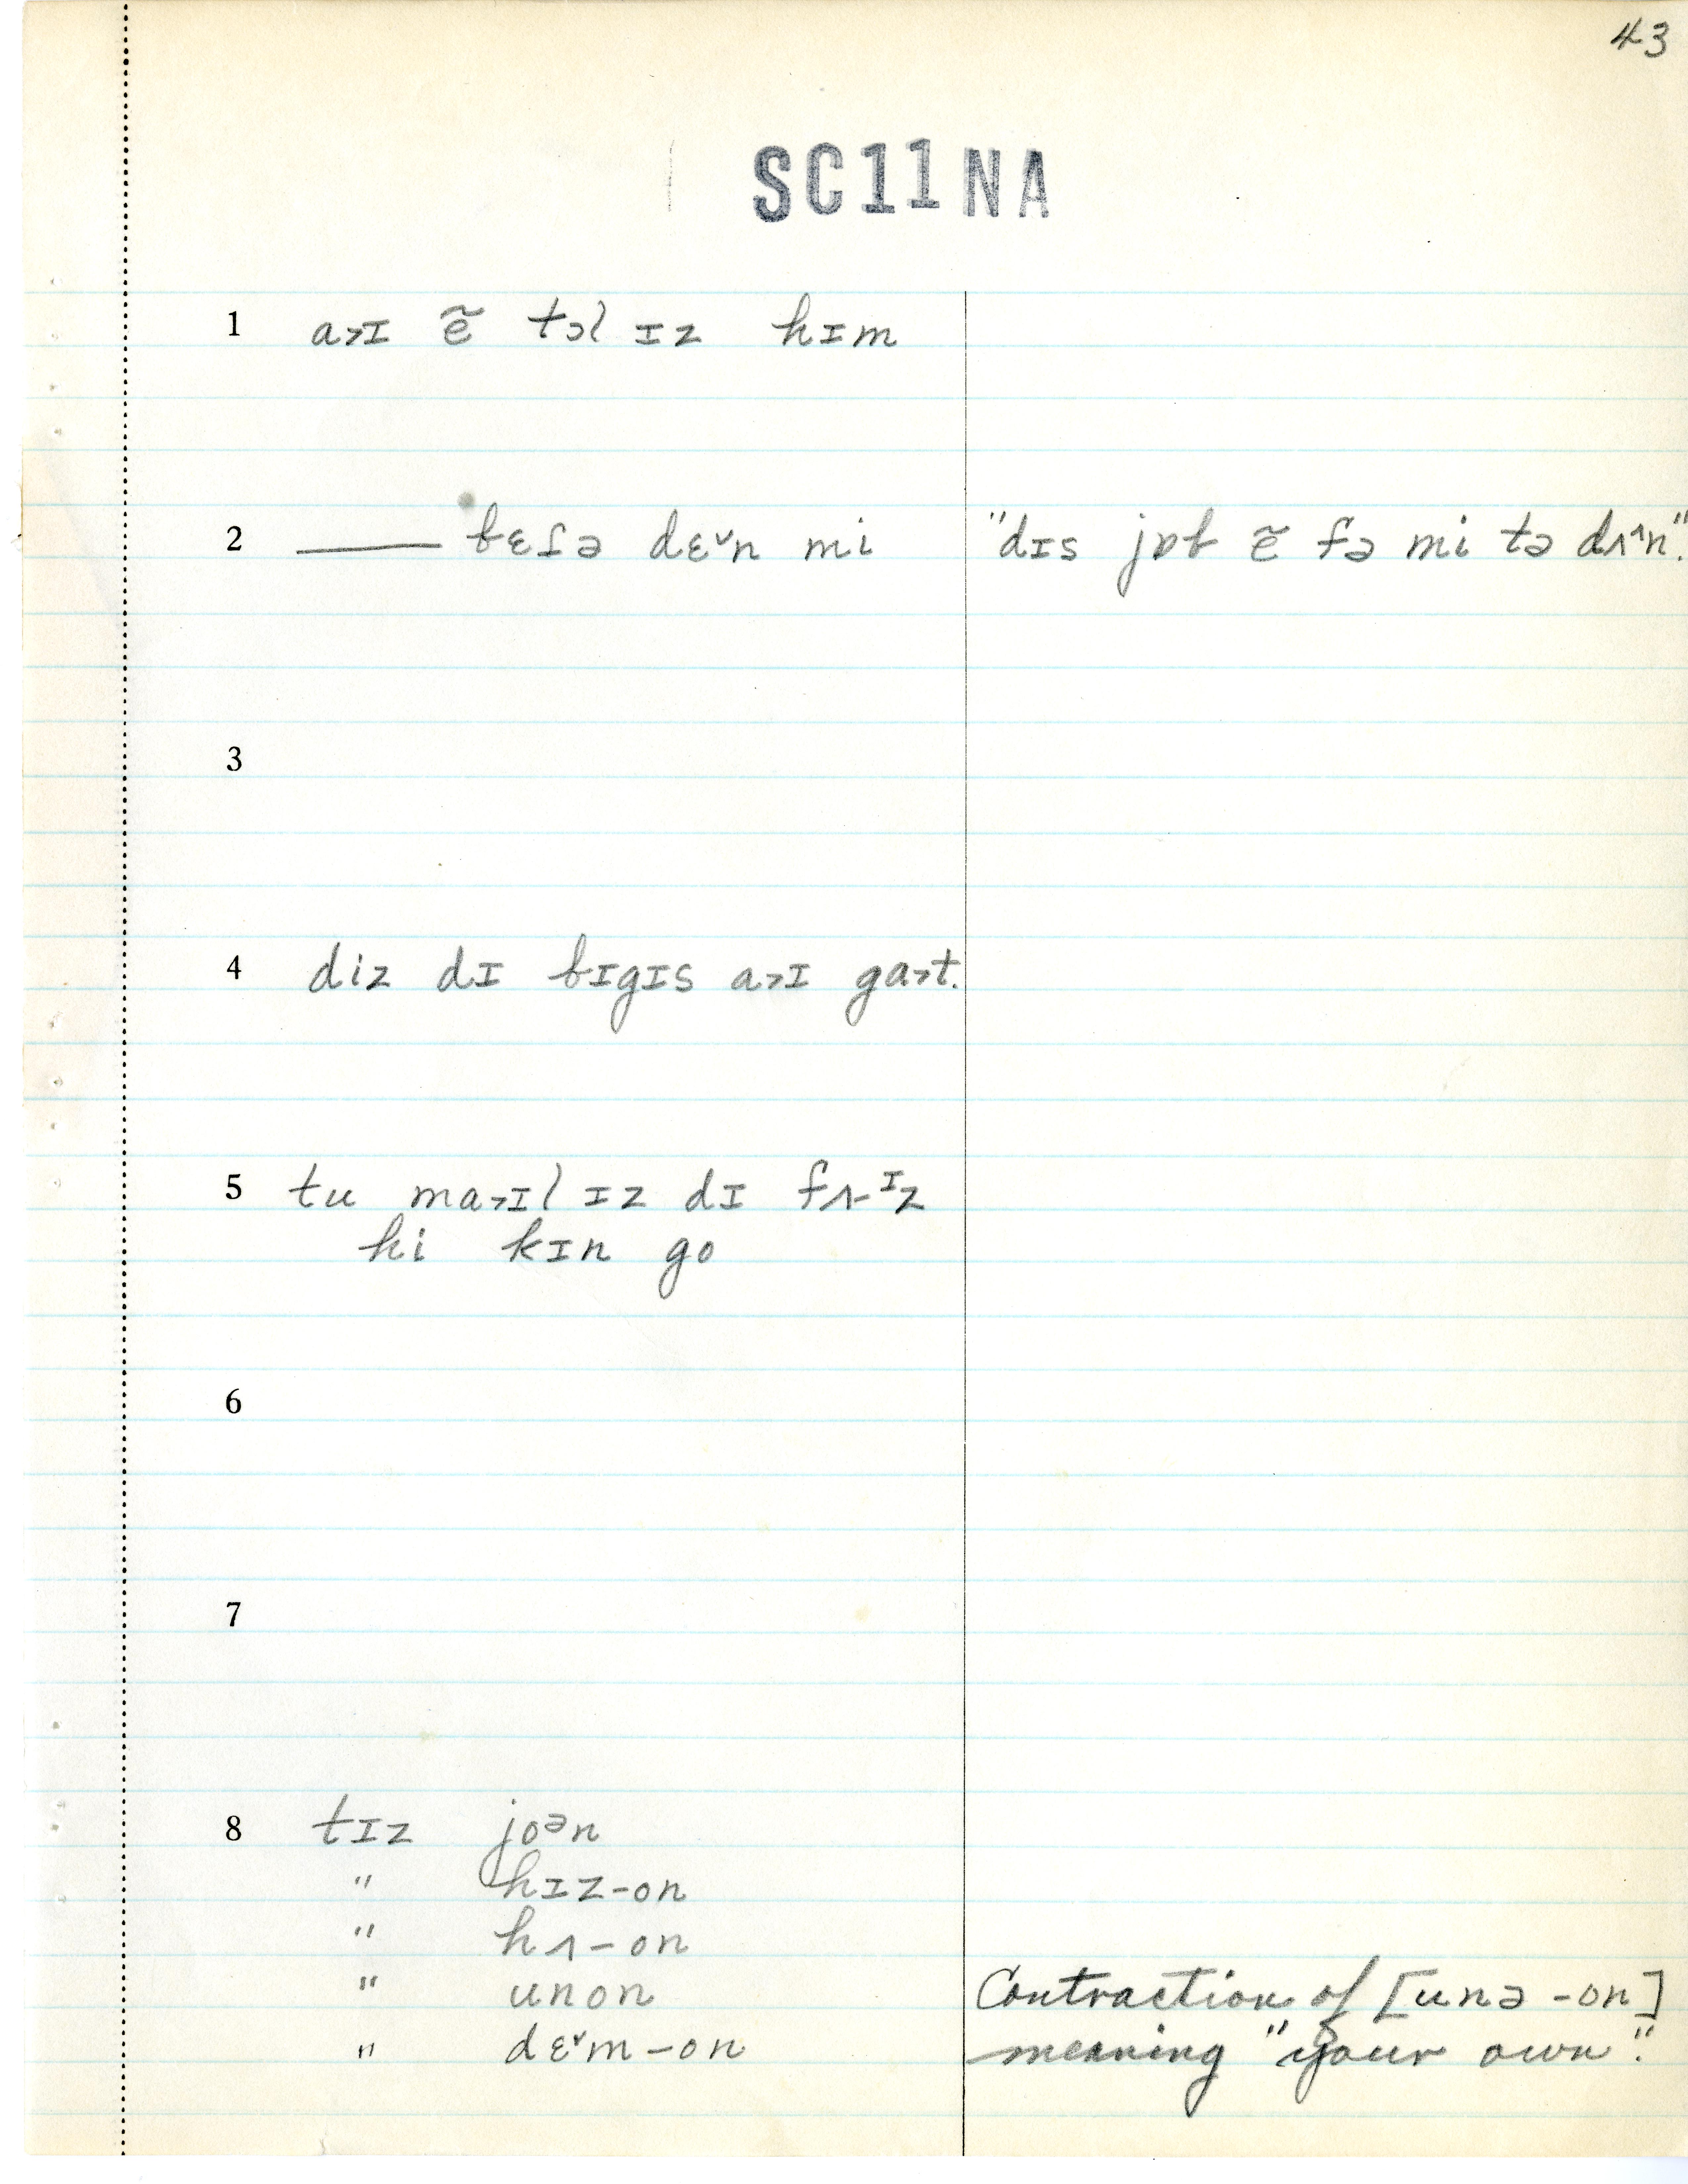 43
SC11NA
1 a˃ɪ ẽ tɔl ɪz hɪm
2 ——— bɛfə dɛ˅n mi "dɪs jɒb ẽ fə mi tə dʌ^n".
3
4 diz dɪ bɪgɪs a˃ɪ ga˃t.
5 tu ma˃ɪl ɪz dɪ fʌ-ɪz
hi kɪn go
6
7
8 tɪz joᵊn
" hɪz-on
" hʌ-on
" unon Contraction of [unə-on]
" dɛ˅m-on meaning "your own".